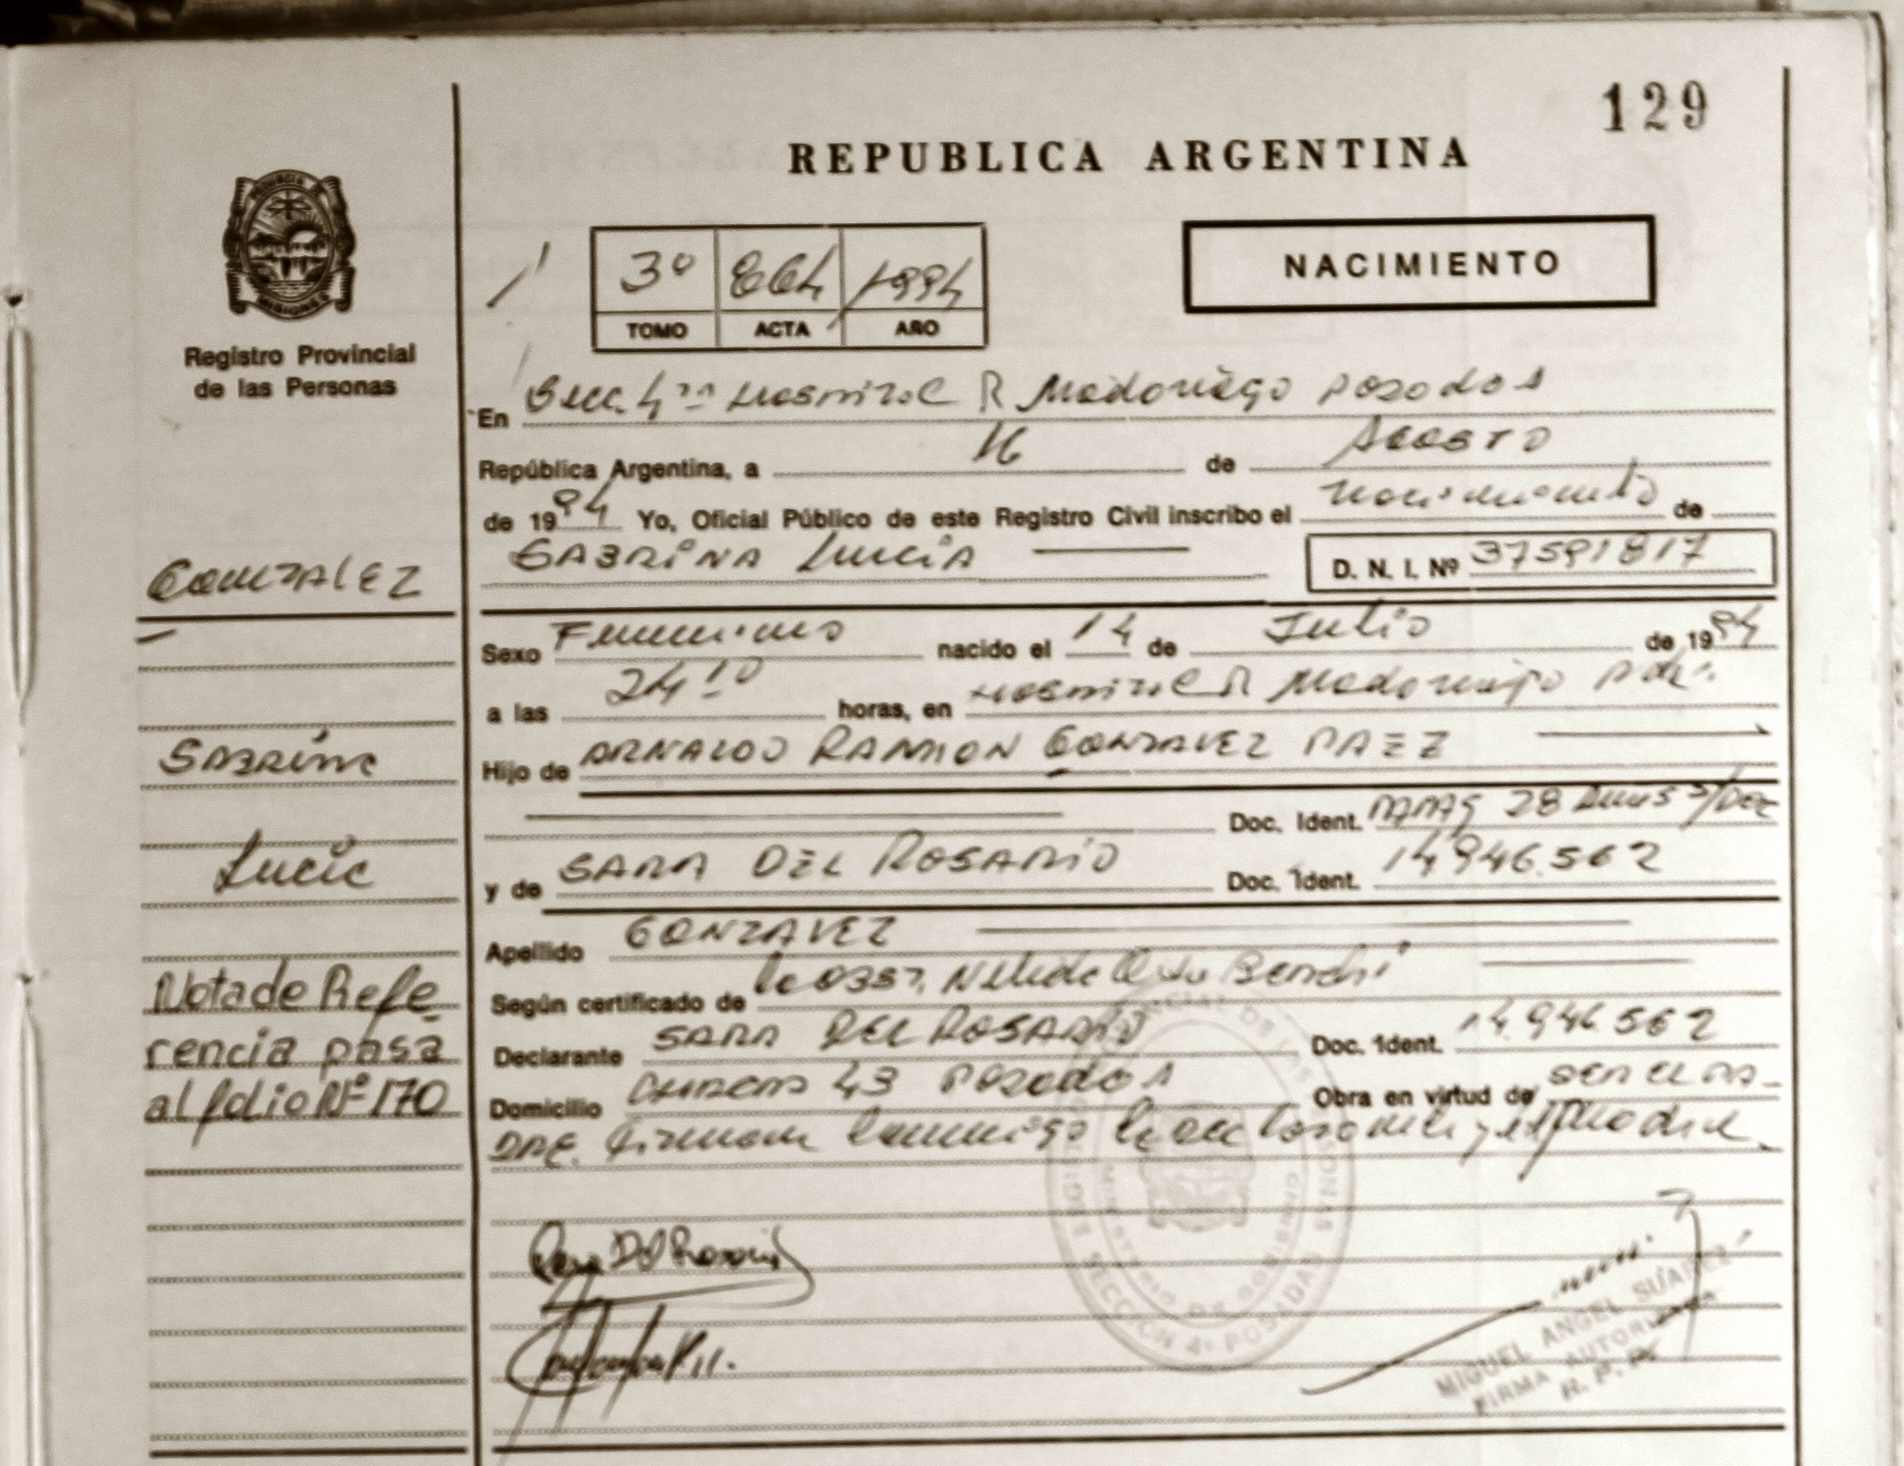 129
REPUBLICA ARGENTINA
PROVINCIA DE
MISIONES
Registro Provincial
de las Personas
3º 664 1994
TOMO ACTA AÑO
NACIMIENTO
En Secc. 4ta Hospital R Madariaga Posadas
República Argentina, a 16 de Agosto
de 1994 Yo, Oficial Público de este Registro Civil inscribo el nacimiento de
SABRINA LUCIA
D. N. I. Nº 37591817
GONZALEZ
Sexo Femenino nacido el 14 de Julio de 1994
a las 24 10 horas, en Hospital R Madariaga Pdas.
Hijo de ARNALDO RAMON GONZALEZ PAEZ
SABRINA
Doc. Ident. 28 años s/Doc
Lucia
y de SARA DEL ROSARIO Doc. Ident. 14.946.562
Apellido GONZALEZ
Según certificado de la Obst. Nelida
Declarante SARA DEL ROSARIO Doc. Ident. 14.946.562
Domicilio 43 Posadas Obra en virtud de ser el PA-
DRE. Firman conmigo la declarante y el padre.
Nota de Refe
rencia pasa
al folio Nº 170
Sara Del Rosario
SECCION 4ª POSADAS
MIGUEL ANGEL SUAREZ
FIRMA AUTORIZADA
R. P. P.